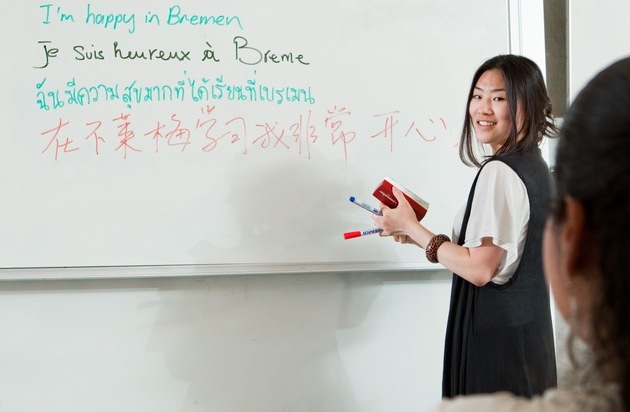 I'm happy in Bremen
Je suis heureux à Breme
ฉันมีความสุขมากที่ได้เรียนที่เบรเมน
在不莱梅学习我非常开心.